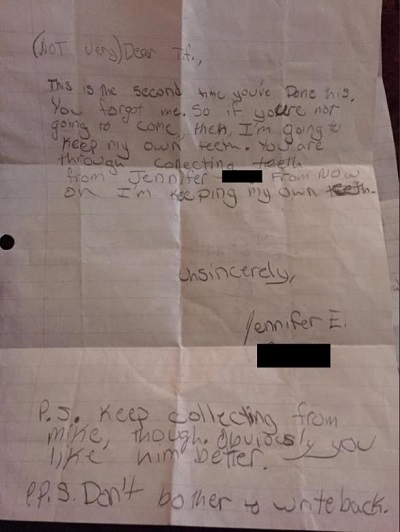 (not very) Dear T.f.,
This is the second time you've Done this.
You forgot me. So if you're not
going to come, then, I'm going to
keep my own teeth. You are
through collecting teeth
from Jennifer From now
on I'm keeping my own teeth.
unsincerely,
Jennifer E.
P.S. Keep collecting from
mike, though. Obviously you
like him better.
PP.S. Don't bother to write back.